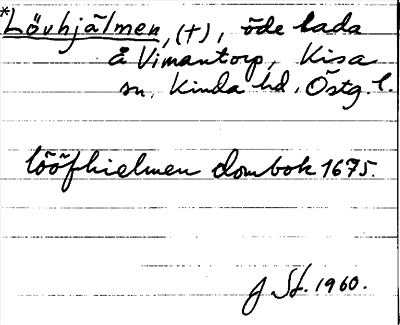 *Lövhjälmen, (†), öde lada
å Vimantorp, Kisa
sn, Kinda hd, Östg. l.
lööfhielmen dombok 1675.
J St. 1960.